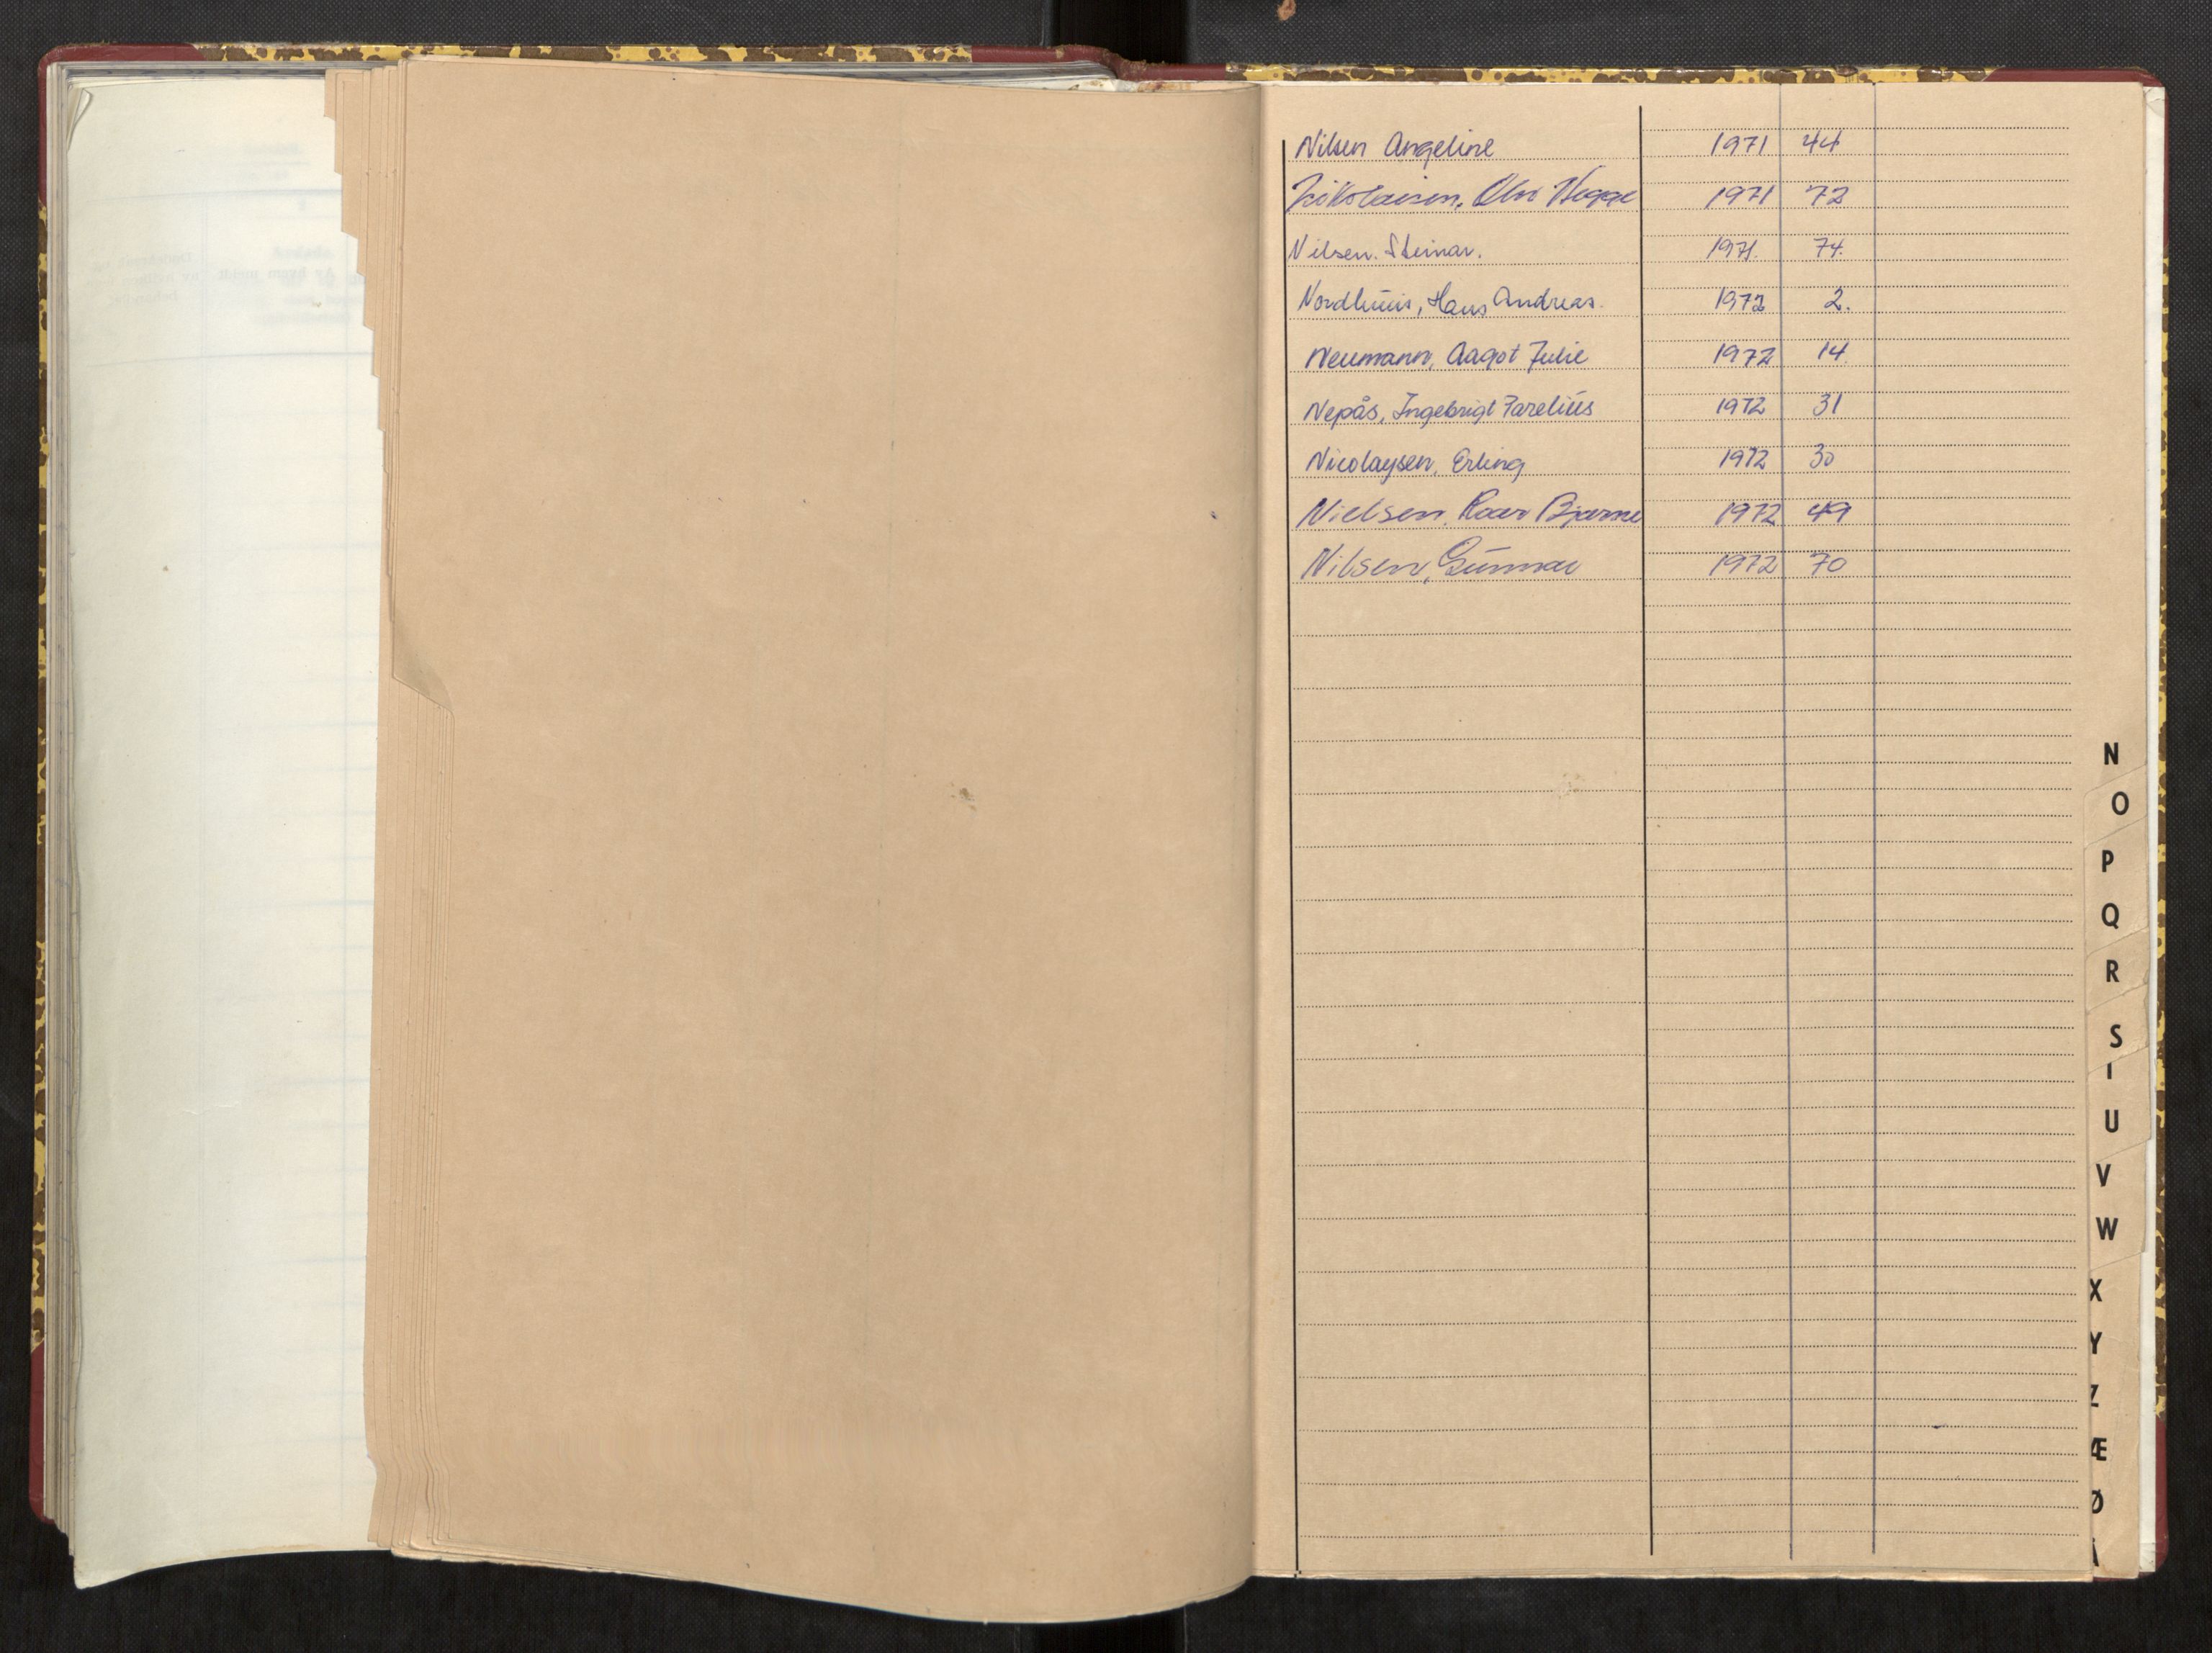 Nilsen Angeline 1971 44
Nikolaisen, Olav Hegge 1971 72
Nilsen. Steinar. 1971. 74.
Nordhuus, Hans Andreas. 1972 2.
Neumann, Aagot Julie 1972 14.
Nepås, Ingebrigt Farelius 1972 31
Nicolaysen, Erling 1972 30
Nielsen, Roar Bjarne 1972 49
Nilsen, Gunnar 1972 70
N
O
P
Q
R
S
U
V
W
X
Y
Z
Æ
Ø